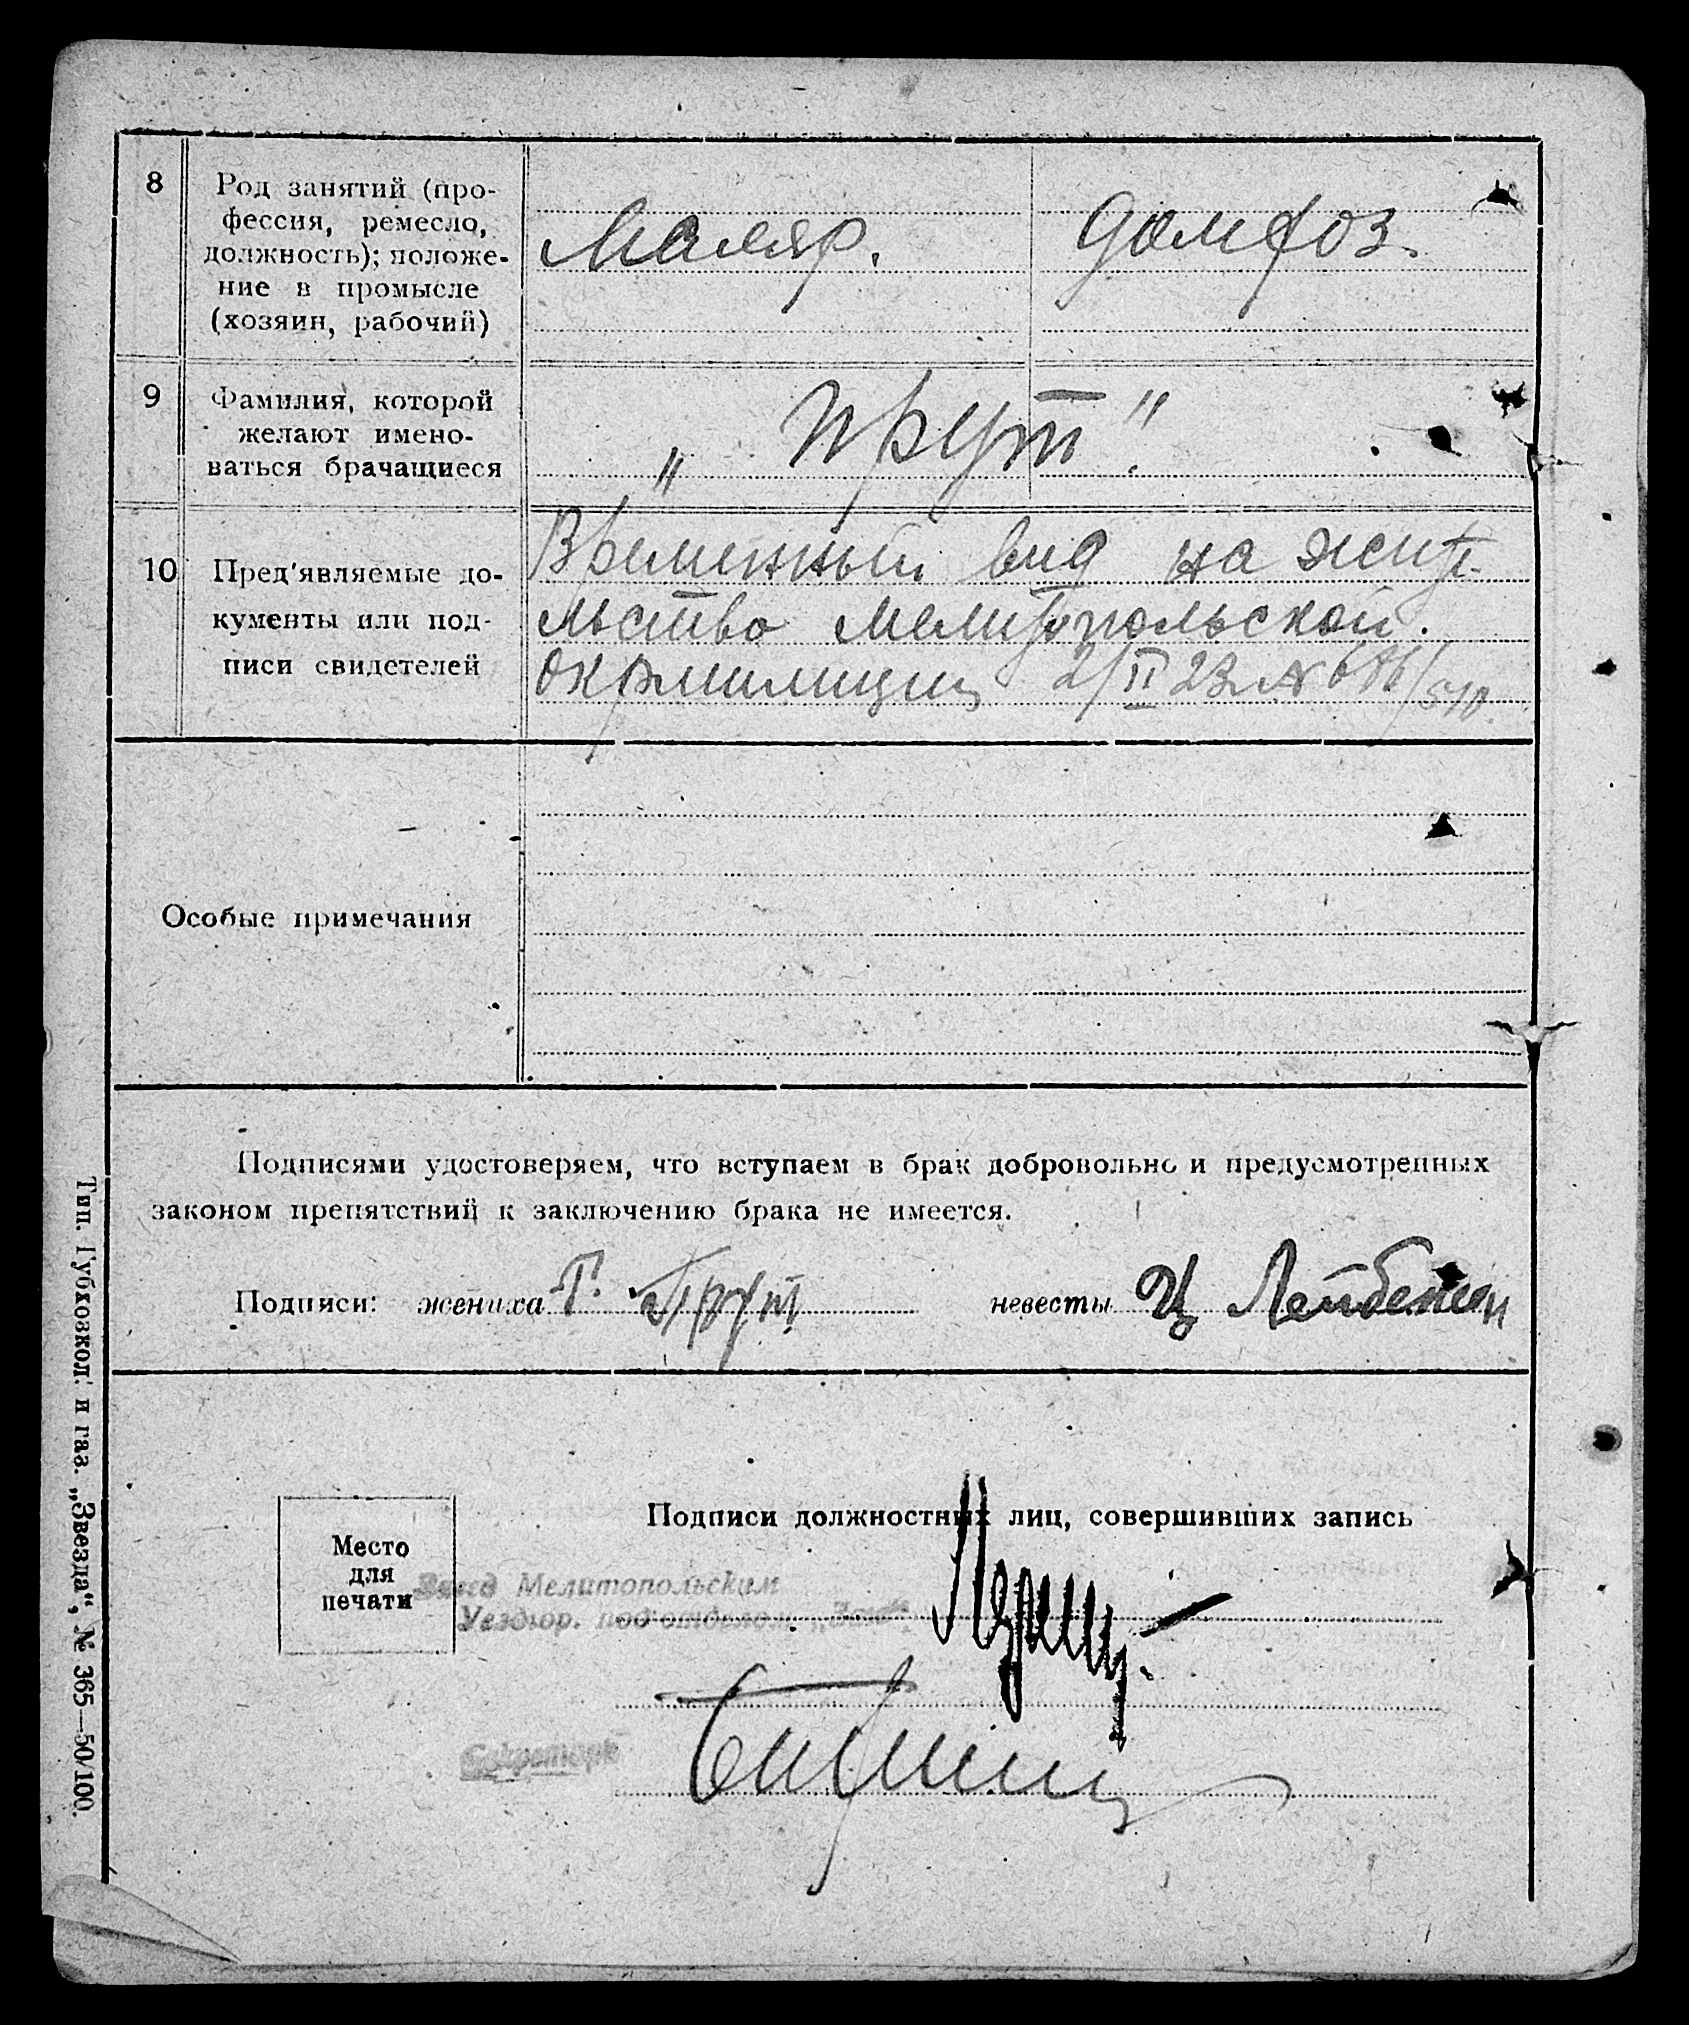 8
Род занятий (про-
фессия, ремесло,
должность); положе-
ние в промысле
(хозяин, рабочий)
Маляр.
домхоз.
9
Фамилия, которой
желают имено-
ваться брачащиеся
„Прут".
10
Пред'являемые до-
кументы или под-
писи свидетелей
Временный вид на жите-
льство Мелитопольской
окрмилиции 2/II 23
Особые примечания
Подписями удостоверяем, что вступаем в брак добровольно и предусмотренных
законом препятствий к заключению брака не имеется.
Подписи: жениха Г. Прут невесты Ц Лейбензон
Подписи должностных лиц, совершивших запись
Место
для
печати
Завед Мелитопольским
Уездюр. подотделом „Загс"
Секретарь
Тип. Губхозкол. и газ. „Звезда", № 365—50/100.